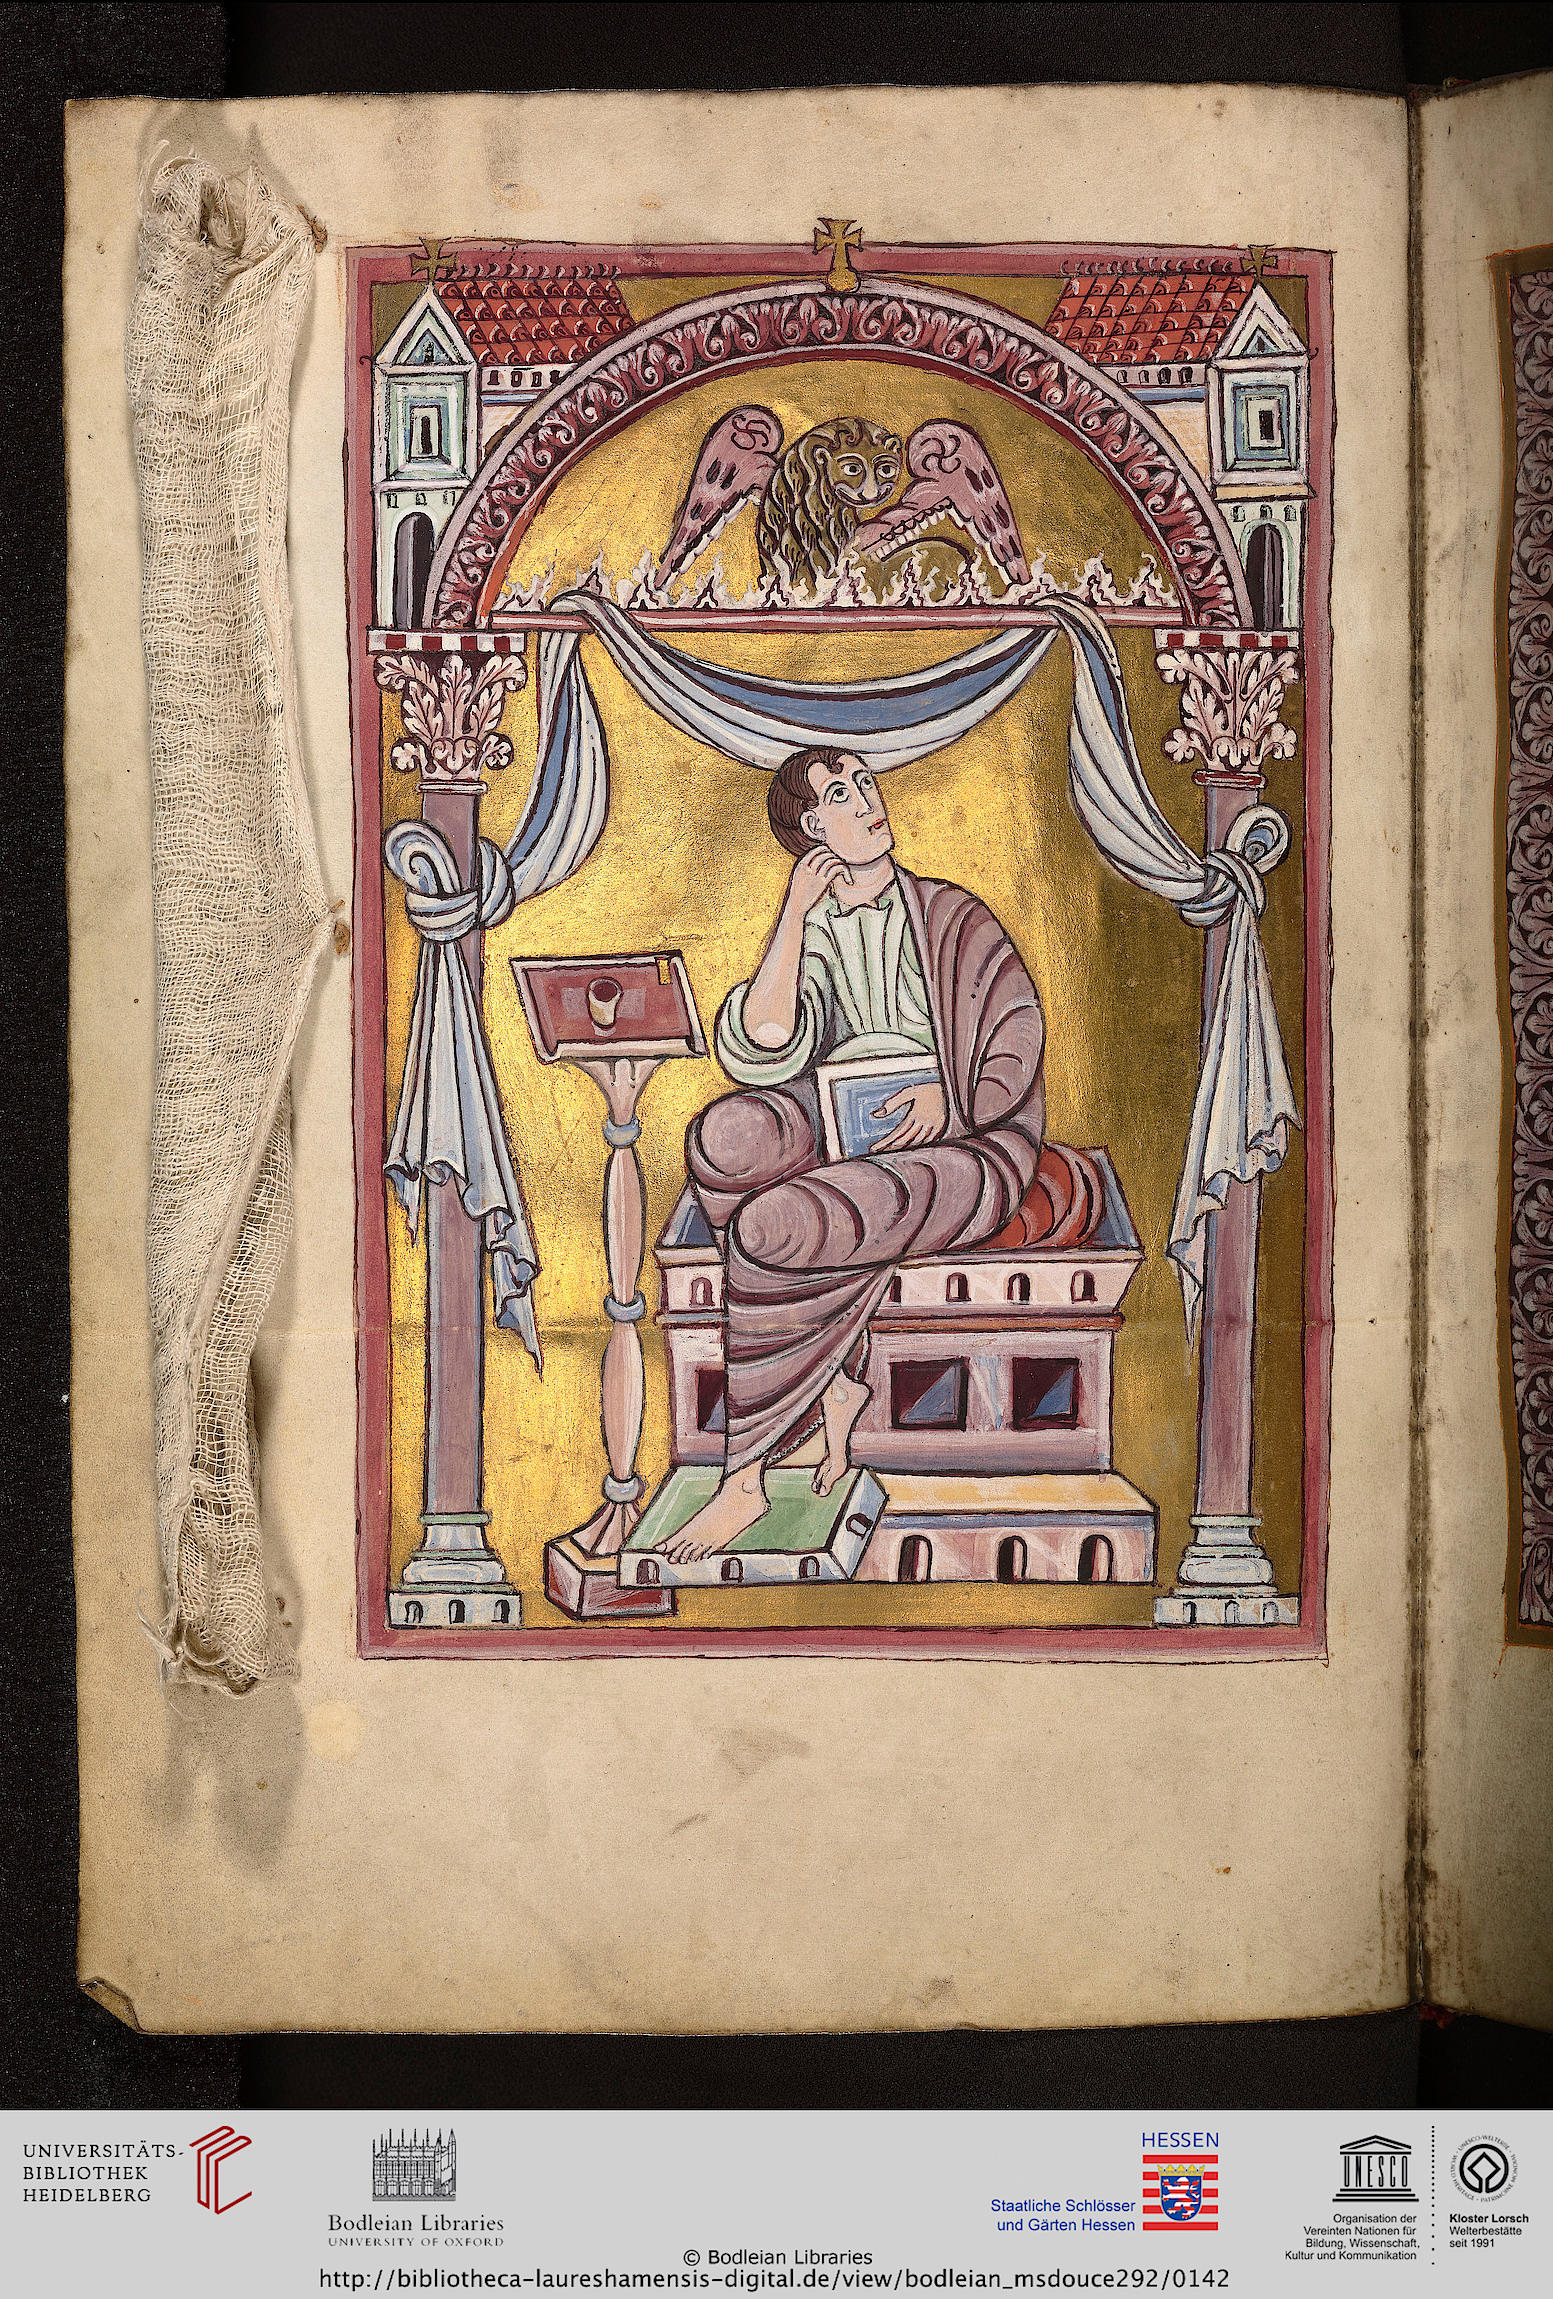 UNIVERSITÄTS-
BIBLIOTHEK
HEIDELBERG
Bodleian Libraries
UNIVERSITY OF OXFORD
HESSEN
Staatliche Schlösser
und Gärten Hessen
UNESCO
Organisation der
Vereinten Nationen für
Bildung, Wissenschaft,
Kultur und Kommunikation
Kloster Lorsch
Welterbestätte
seit 1991
© Bodleian Libraries
http://bibliotheca-laureshamensis-digital.de/view/bodleian_msdouce292/0142